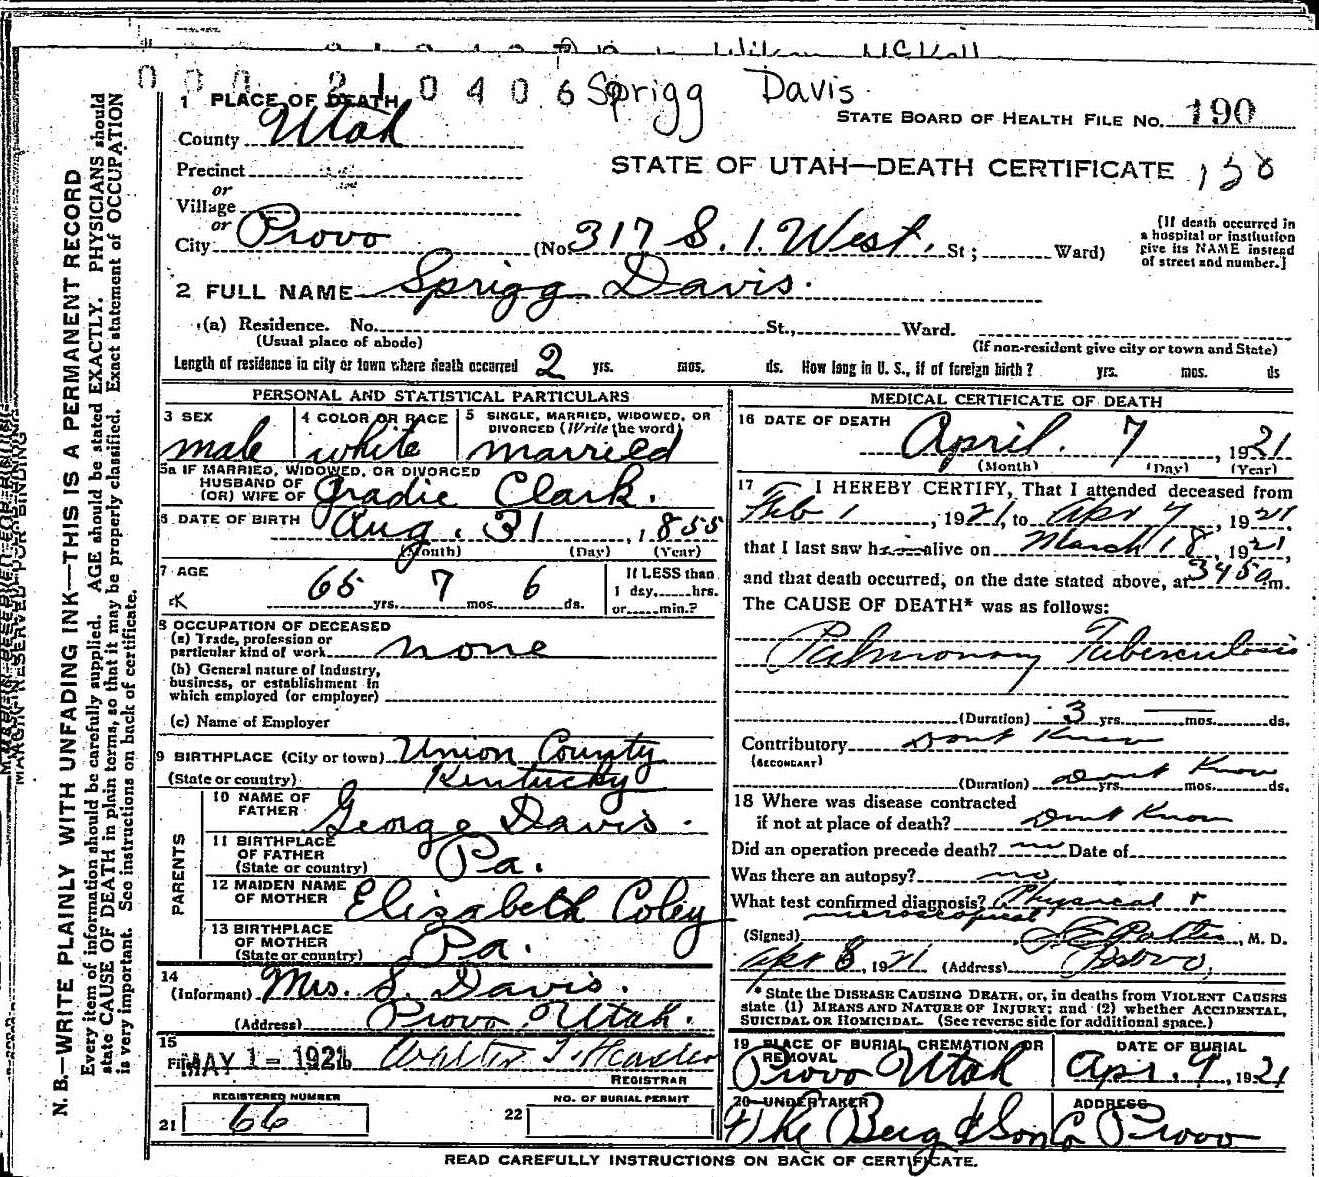 0 0 0 2 1 0 4 0 6 Sprigg Davis
1 PLACE OF DEATH
STATE BOARD OF HEALTH FILE NO. 190
County Utah
STATE OF UTAH—DEATH CERTIFICATE
Precinct
or
Village
or
City Provo (No. 317 S. 1. West, St; Ward)
[If death occurred in
a hospital or institution
give its NAME instead
of street and number.]
2 FULL NAME Sprigg Davis.
(a) Residence. No. St., Ward.
(Usual place of abode) (If non-resident give city or town and State)
Length of residence in city or town where death occurred 2 yrs. mos. ds. How long in U. S., if of foreign birth? yrs. mos. ds
PERSONAL AND STATISTICAL PARTICULARS
3 SEX male
4 COLOR OR RACE white
5 SINGLE, MARRIED, WIDOWED, OR
DIVORCED (Write the word)
married
5a IF MARRIED, WIDOWED, OR DIVORCED
HUSBAND OF
(OR) WIFE OF Gradie Clark.
6 DATE OF BIRTH Aug. 31, 1855
(Month) (Day) (Year)
7 AGE 65 yrs. 7 mos. 6 ds.
If LESS than
1 day, hrs.
or min.?
8 OCCUPATION OF DECEASED
(a) Trade, profession or
particular kind of work none
(b) General nature of Industry,
business, or establishment in
which employed (or employer)
(c) Name of Employer
9 BIRTHPLACE (City or town) Union County
(State or country) Kentucky
PARENTS
10 NAME OF
FATHER George Davis.
11 BIRTHPLACE
OF FATHER
(State or country) Pa.
12 MAIDEN NAME
OF MOTHER Elizabeth Coley
13 BIRTHPLACE
OF MOTHER
(State or country) Pa.
14
(Informant) Mrs. S. Davis.
(Address) Provo, Utah.
15
Filed MAY 1 - 1921 Walter T. Hasler
REGISTRAR
REGISTERED NUMBER
21 66
22 NO. OF BURIAL PERMIT
MEDICAL CERTIFICATE OF DEATH
16 DATE OF DEATH
April. 7, 1921
(Month) (Day) (Year)
17 I HEREBY CERTIFY, That I attended deceased from
Feb 1, 1921, to Apr 7, 1921
that I last saw h alive on March 18, 1921,
and that death occurred, on the date stated above, at m.
The CAUSE OF DEATH* was as follows:
Pulmonary Tuberculosis
(Duration) 3 yrs. mos. ds.
Contributory Dont Know
(SECONDARY)
(Duration) Dont Know yrs. mos. ds.
18 Where was disease contracted
if not at place of death? Dont Know
Did an operation precede death? no Date of
Was there an autopsy? no
What test confirmed diagnosis? Physical +
microscopical
(Signed) , M. D.
Apr 8, 1921 (Address) Provo,
* State the DISEASE CAUSING DEATH, or, in deaths from VIOLENT CAUSES
state (1) MEANS AND NATURE OF INJURY; and (2) whether ACCIDENTAL,
SUICIDAL OR HOMICIDAL. (See reverse side for additional space.)
19 PLACE OF BURIAL CREMATION OR
REMOVAL
Provo Utah
DATE OF BURIAL
Apr. 9, 1921
20 UNDERTAKER
The Berg & Son Co
ADDRESS
Provo
READ CAREFULLY INSTRUCTIONS ON BACK OF CERTIFICATE.
MARGIN RESERVED FOR BINDING
N. B.—WRITE PLAINLY WITH UNFADING INK—THIS IS A PERMANENT RECORD
Every item of information should be carefully supplied. AGE should be stated EXACTLY. PHYSICIANS should
state CAUSE OF DEATH in plain terms, so that it may be properly classified. Exact statement of OCCUPATION
is very important. See instructions on back of certificate.